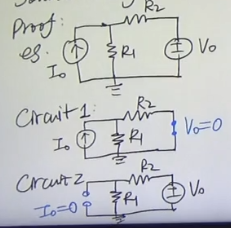 Proof:
R2
eg.
I0
R1
V0
Circuit 1:
R2
I0
R1
V0=0
Circuit 2
R2
I0=0
R1
V0